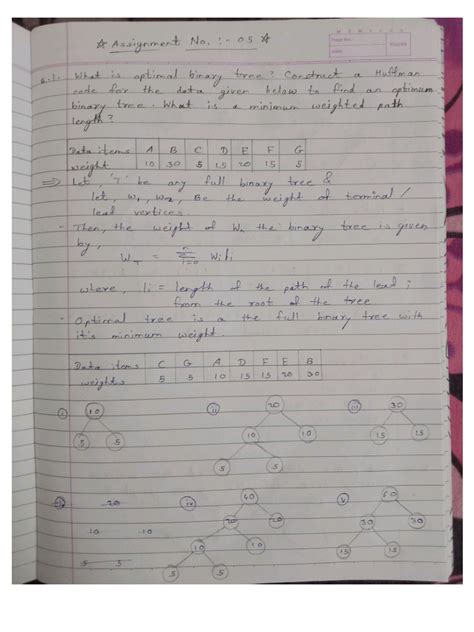 ☆ Assignment No. :- 05 ☆
Q.1. What is optimal binary tree? Construct a Huffman
code for the data given below to find an optimum
binary tree. What is a minimum weighted path
length?
Data items A B C D E F G
weight 10 30 5 15 20 15 5
⇒ Let 'T' be any full binary tree &
let, w₁, w₂, Be the weight of terminal /
lead vertices.
- Then, the weight of Wₙ the binary tree is given
by,
W_T = Σ_{i=0}^{n} Wili
where, li = length of the path of the lead i
from the root of the tree
- Optimal tree is a the full binary tree with
it's minimum weight.
Data items C G A D F E B
weights 5 5 10 15 15 20 30
i) 10 ii) 20 iii) 30
5 5 10 10 15 15
5 5
20 iv) 40 v) 60
10 10 20 20 30 30
5 5 10 10 15 15
5 5